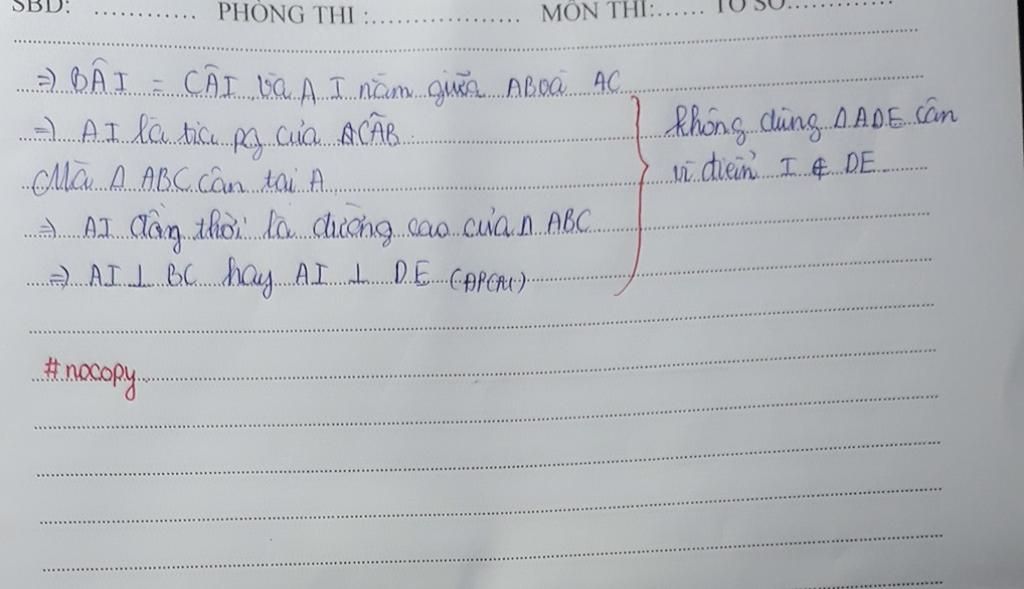 SBD: ............ PHÒNG THI :.................. MÔN THI:...... TỜ SỐ............
=> BÂI = CÂI và A I nằm giữa AB và AC
=> AI là tia pg của ACÂB
Mà Δ ABC cân tại A
=> AI đồng thời là đường cao của Δ ABC
=> AI ⊥ BC hay AI ⊥ DE (ĐPCM)
không dùng Δ ADE cân
vì điểm I ∉ DE
#nocopy